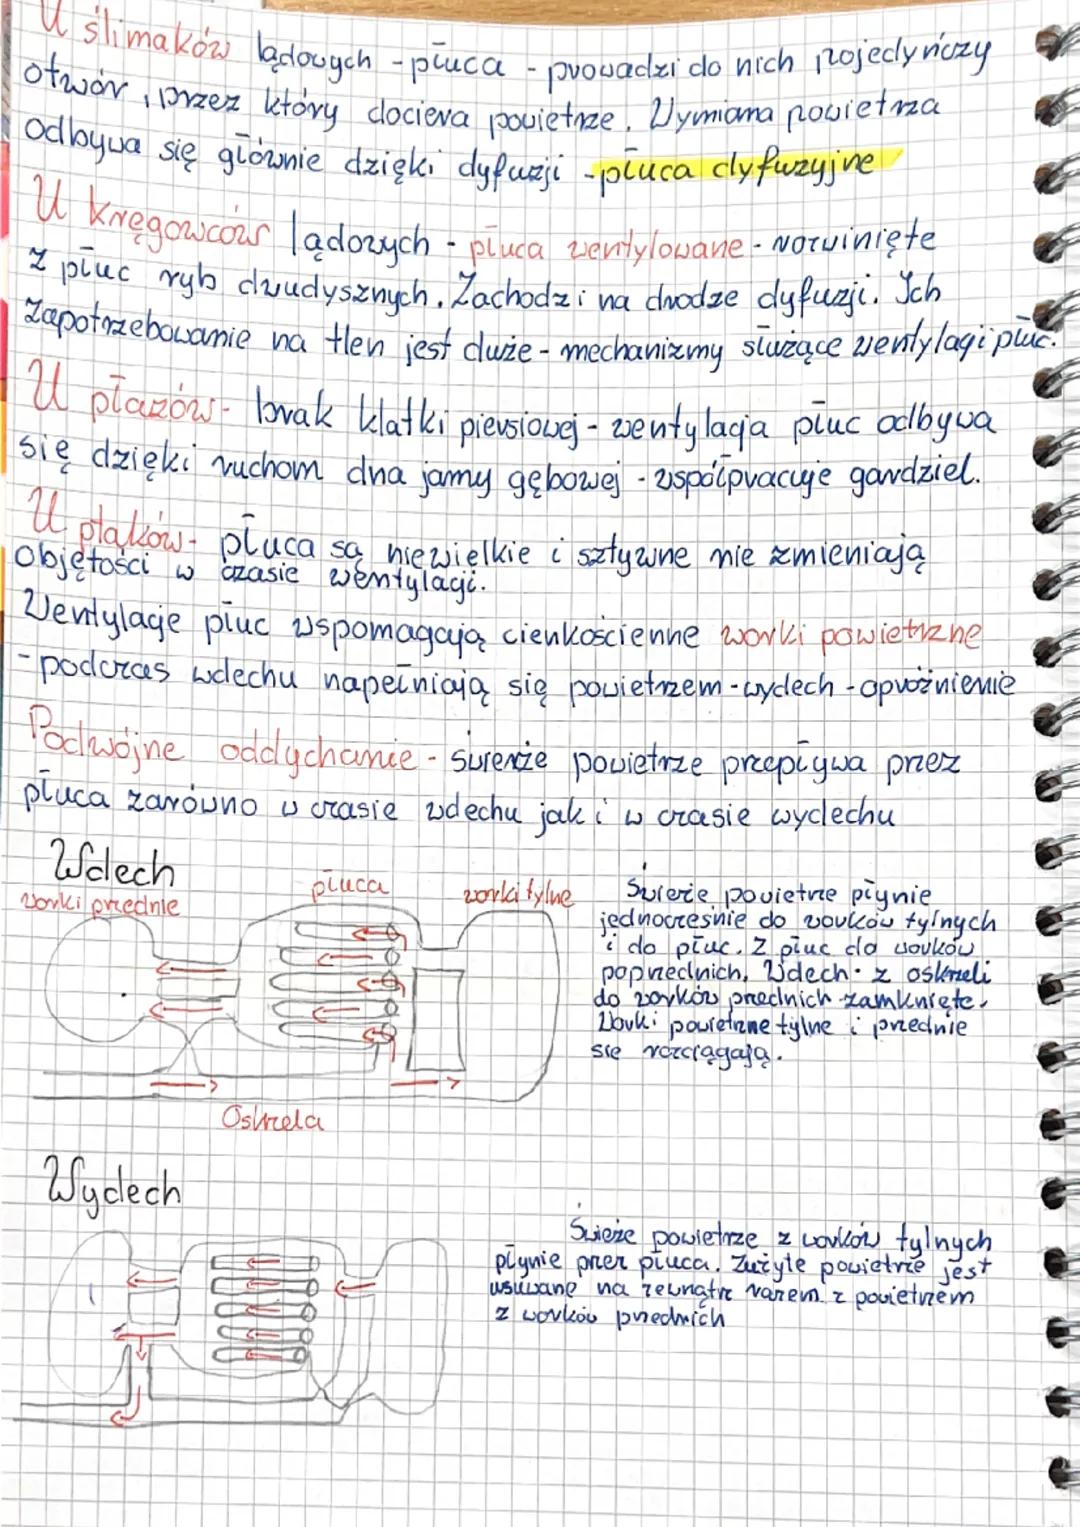 U ślimaków lądowych - płuca - prowadzi do nich pojedyńczy
otwór, przez który dociera powietrze. Wymiana powietrza
odbywa się głównie dzięki dyfuzji - płuca dyfuzyjne
U kręgowców lądowych - płuca wentylowane - rozwinięte
z płuc ryb dwudysznych. Zachodzi na drodze dyfuzji. Ich
zapotrzebowanie na tlen jest duże - mechanizmy służące wentylacji płuc.
U płazów - brak klatki piersiowej - wentylacja płuc odbywa
się dzięki ruchom dna jamy gębowej - współpracuje gardziel.
U ptaków - płuca są niewielkie i sztywne nie zmieniają
objętości w czasie wentylacji.
Wentylację płuc wspomagają cienkościenne worki powietrzne
- podczas wdechu napełniają się powietrzem - wydech - opróżnienie
Podwójne oddychanie - świeże powietrze przepływa przez
płuca zarówno w czasie wdechu jak i w czasie wydechu
Wdech
worki przednie
płuca
worki tylne
Oskrzela
Świeże powietrze płynie
jednocześnie do worków tylnych
i do płuc. Z płuc do worków
poprzednich. Wdech - z oskrzeli
do worków przednich zamknięte.
Worki powietrzne tylne i przednie
się rozciągają.
Wydech
Świeże powietrze z worków tylnych
płynie przez płuca. Zużyte powietrze jest
usuwane na zewnątrz razem z powietrzem
z worków przednich